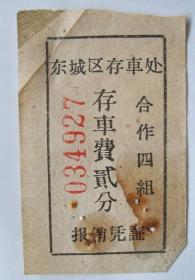 东城区存車处
合作四组
存車費貳分
034927
报销凭証